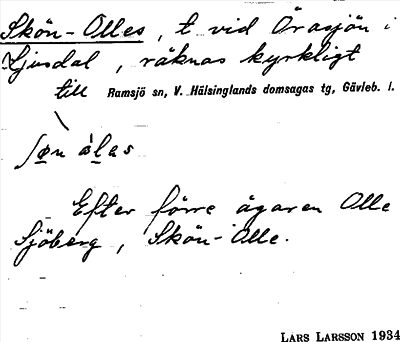 Skön-Olles, t vid Örasjön i
Ljusdal, räknas kyrkligt
till Ramsjö sn, V. Hälsinglands domsagas tg, Gävleb. l.
ʃøn ɑles
Efter förre ägaren Olle
Sjöberg, Skön-Olle.
LARS LARSSON 1934